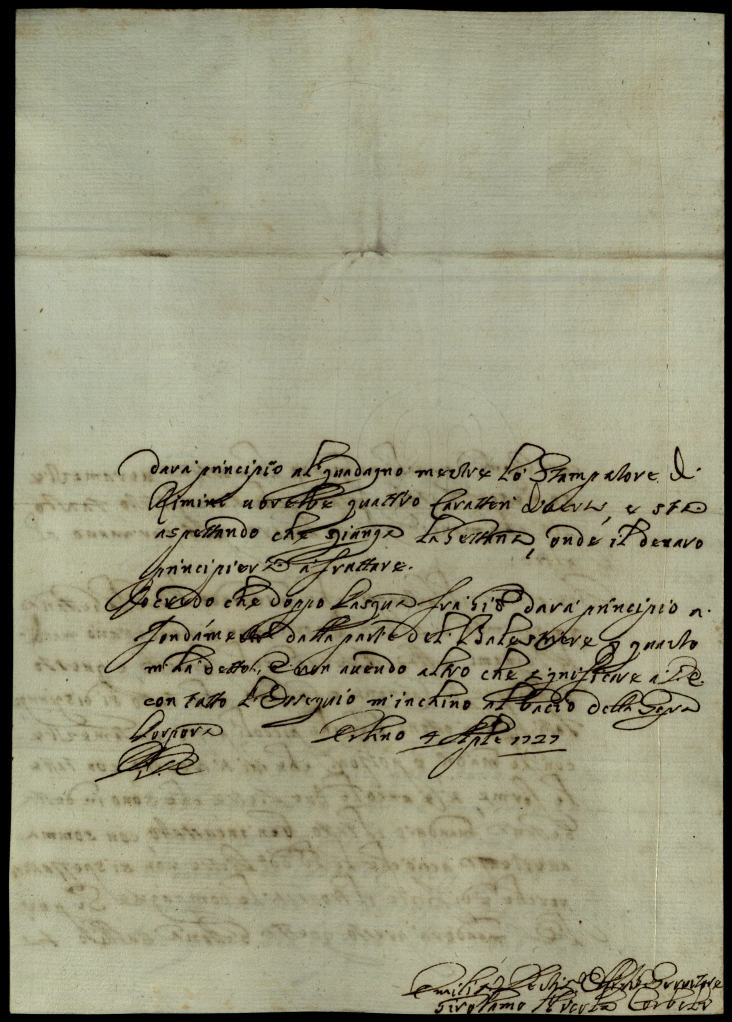 darà principio al guadagno mentre lo Stampatore di
Rimini vorebbe quattro Caratteri diversi, e sta
aspettando che gionga la Settima, onde il denaro
principierà a fruttare.
Io credo che doppo Pasqua darà principio a
fondam dalla parte del Balestriere p quanto
m'ha detto, e non avendo altro che significare a VE
con tutto l'Ossequio m'inchino al bacio della Sagra
Porpora Urbino 4 Aple 1727
D. V. E.
Umiliss Devmo Servitore
Girolamo Nicola